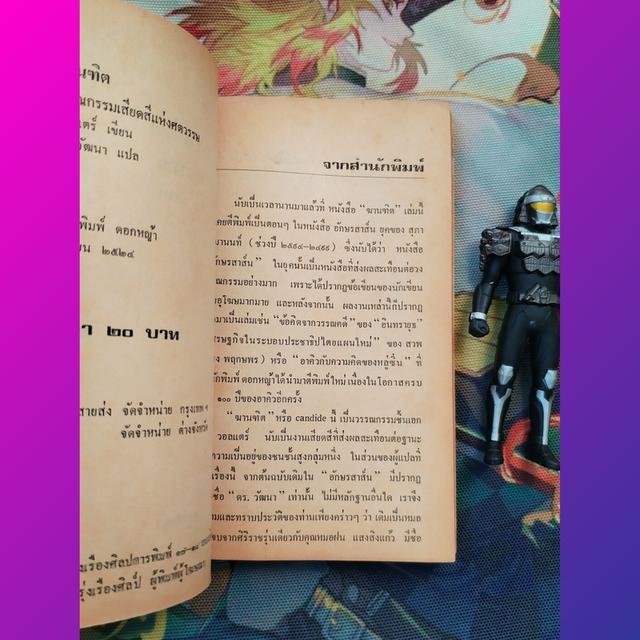 นฑิต
ณกรรมเสียดสีแห่งศตวรรษ
ตร์ เขียน
วัฒนา แปล
พิมพ์ ดอกหญ้า
ยน ๒๕๒๔
า ๒๐ บาท
สายส่ง จัดจำหน่าย กรุงเทพ ฯ
จัดจำหน่าย ต่างจังหวัด
งเรืองศิลปการพิมพ์
รุ่งเรืองศิลป์ ผู้พิมพ์ผู้โฆษณา
จากสำนักพิมพ์
นับเป็นเวลานานมาแล้วที่ หนังสือ “ฆานฑิต” เล่มนี้
คยตีพิมพ์เป็นตอนๆ ในหนังสือ อักษรสาส์น ยุคของ สุภา
มานนท์ (ช่วงปี ๒๔๙๔-๒๔๙๙) ซึ่งนับได้ว่า หนังสือ
อักษรสาส์น” ในยุคนั้นเป็นหนังสือที่ส่งผลสะเทือนต่อวง
รณกรรมอย่างมาก เพราะได้ปรากฏข้อเขียนของนักเขียน
อุโฆษมากมาย และหลังจากนั้น ผลงานเหล่านี้ก็ปรากฏ
มาเป็นเล่มเช่น “ข้อคิดจากวรรณคดี” ของ “อินทรายุธ”
ศรษฐกิจในระบอบประชาธิปไตยแผนใหม่” ของ สวพ
ง พฤกษพร) หรือ “อาคิวกับความคิดของหลู่ซิ่น” ที่
นักพิมพ์ ดอกหญ้าได้นำมาตีพิมพ์ใหม่ เนื่องในโอกาสครบ
๑๐๐ ปีของอาคิวอีกครั้ง
“ฆานฑิต” หรือ candide นี้ เป็นวรรณกรรมชิ้นเอก
วอลแตร์ นับเป็นงานเสียดสีที่ส่งผลสะเทือนต่อฐานะ
ความเป็นอยู่ของชนชั้นสูงกลุ่มหนึ่ง ในส่วนของผู้แปลที่
เรื่องนี้ จากต้นฉบับเดิมใน “อักษรสาส์น” มีปรากฏ
ชื่อ “ดร. วัฒนา” เท่านั้น ไม่มีหลักฐานอื่นใด เราจึง
ามและทราบประวัติของท่านเพียงคร่าวๆ ว่า เดิมเป็นหมอ
จบจากศิริราชรุ่นเดียวกับคุณหมอฝน แสงสิงแก้ว มีชื่อ